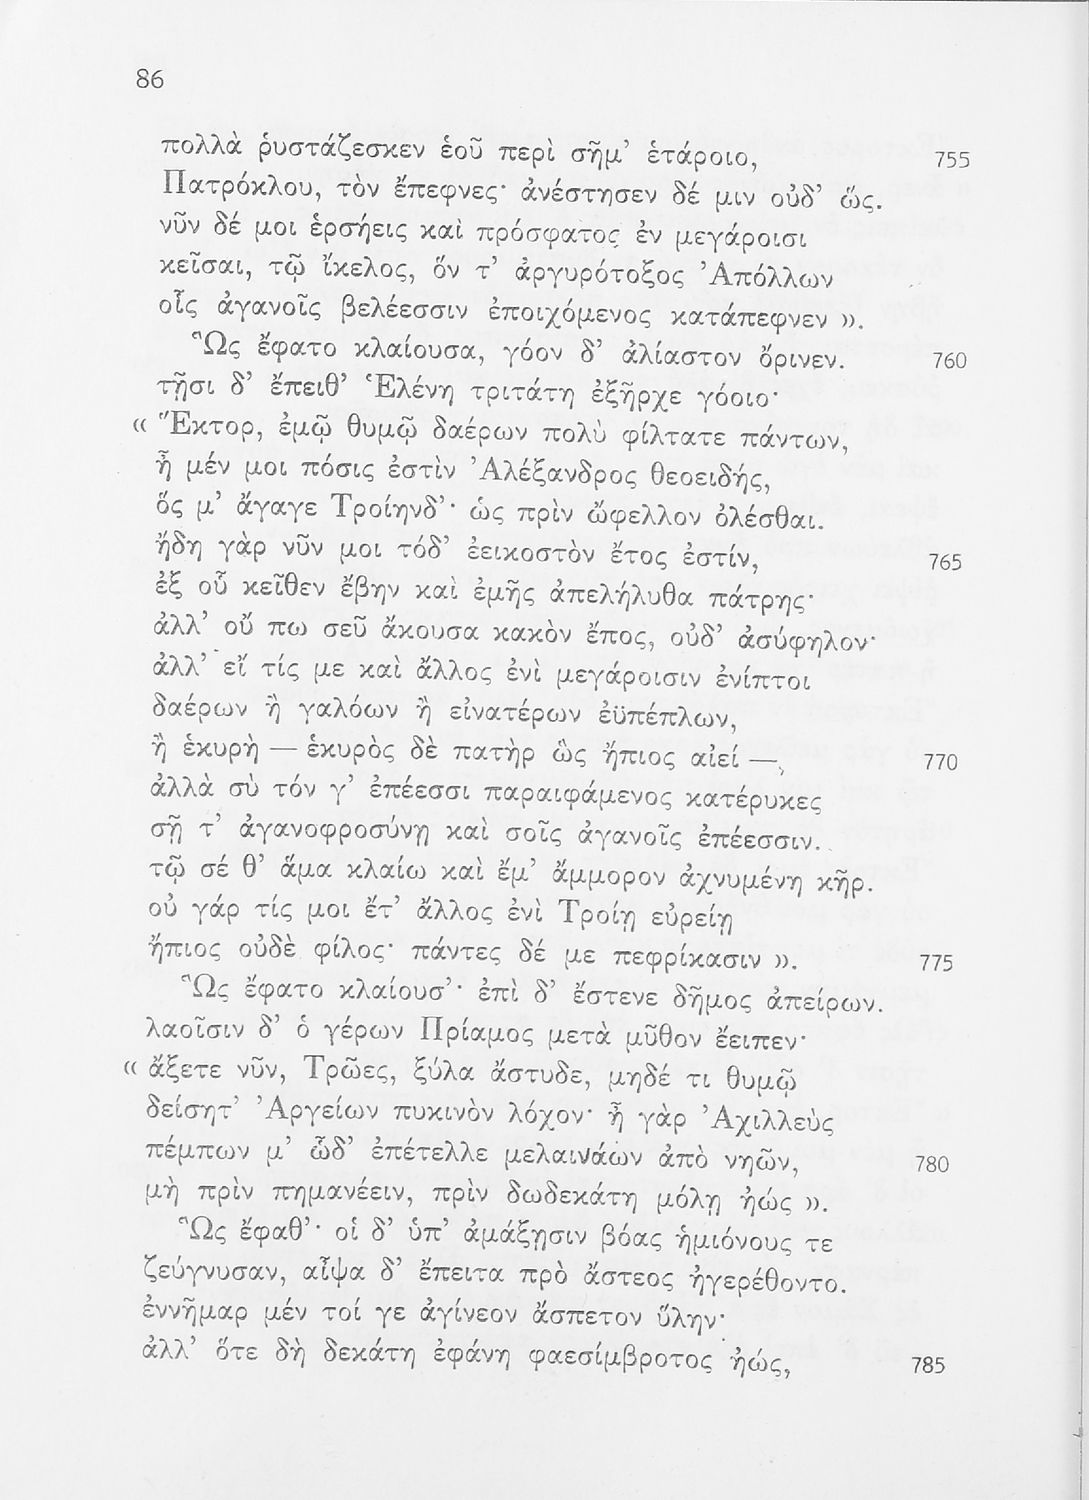 86
πολλὰ ῥυστάζεσκεν ἑοῦ περὶ σῆμ’ ἑτάροιο, 755
Πατρόκλου, τὸν ἔπεφνες· ἀνέστησεν δέ μιν οὐδ’ ὥς.
νῦν δέ μοι ἑρσήεις καὶ πρόσφατος ἐν μεγάροισι
κεῖσαι, τῷ ἴκελος, ὅν τ’ ἀργυρότοξος Ἀπόλλων
οἷς ἀγανοῖς βελέεσσιν ἐποιχόμενος κατάπεφνεν ».
Ὣς ἔφατο κλαίουσα, γόον δ’ ἀλίαστον ὄρινεν. 760
τῇσι δ’ ἔπειθ’ Ἑλένη τριτάτη ἐξῆρχε γόοιο·
« Ἕκτορ, ἐμῷ θυμῷ δαέρων πολὺ φίλτατε πάντων,
ἦ μέν μοι πόσις ἐστὶν Ἀλέξανδρος θεοειδής,
ὅς μ’ ἄγαγε Τροίηνδ’· ὡς πρὶν ὤφελλον ὀλέσθαι.
ἤδη γὰρ νῦν μοι τόδ’ ἐεικοστὸν ἔτος ἐστίν, 765
ἐξ οὗ κεῖθεν ἔβην καὶ ἐμῆς ἀπελήλυθα πάτρης·
ἀλλ’ οὔ πω σεῦ ἄκουσα κακὸν ἔπος, οὐδ’ ἀσύφηλον·
ἀλλ’ εἴ τίς με καὶ ἄλλος ἐνὶ μεγάροισιν ἐνίπτοι
δαέρων ἢ γαλόων ἢ εἰνατέρων ἐϋπέπλων,
ἢ ἑκυρὴ — ἑκυρὸς δὲ πατὴρ ὣς ἤπιος αἰεί —, 770
ἀλλὰ σὺ τόν γ’ ἐπέεσσι παραιφάμενος κατέρυκες
σῇ τ’ ἀγανοφροσύνῃ καὶ σοῖς ἀγανοῖς ἐπέεσσιν.
τῷ σέ θ’ ἅμα κλαίω καὶ ἔμ’ ἄμμορον ἀχνυμένη κῆρ.
οὐ γάρ τίς μοι ἔτ’ ἄλλος ἐνὶ Τροίῃ εὐρείῃ
ἤπιος οὐδὲ φίλος· πάντες δέ με πεφρίκασιν ». 775
Ὣς ἔφατο κλαίουσ’· ἐπὶ δ’ ἔστενε δῆμος ἀπείρων.
λαοῖσιν δ’ ὁ γέρων Πρίαμος μετὰ μῦθον ἔειπεν·
« ἄξετε νῦν, Τρῶες, ξύλα ἄστυδε, μηδέ τι θυμῷ
δείσητ’ Ἀργείων πυκινὸν λόχον· ἦ γὰρ Ἀχιλλεὺς
πέμπων μ’ ὧδ’ ἐπέτελλε μελαινάων ἀπὸ νηῶν, 780
μὴ πρὶν πημανέειν, πρὶν δωδεκάτη μόλῃ ἠώς ».
Ὣς ἔφαθ’· οἱ δ’ ὑπ’ ἀμάξῃσιν βόας ἡμιόνους τε
ζεύγνυσαν, αἶψα δ’ ἔπειτα πρὸ ἄστεος ἠγερέθοντο.
ἐννῆμαρ μέν τοί γε ἀγίνεον ἄσπετον ὕλην·
ἀλλ’ ὅτε δὴ δεκάτη ἐφάνη φαεσίμβροτος ἠώς, 785